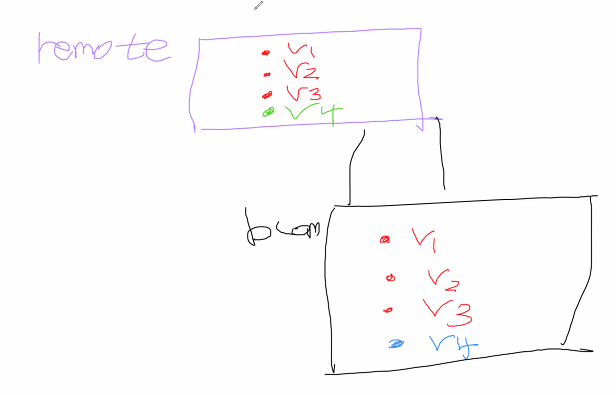 remote
v1
v2
v3
v4
v1
v2
v3
v4